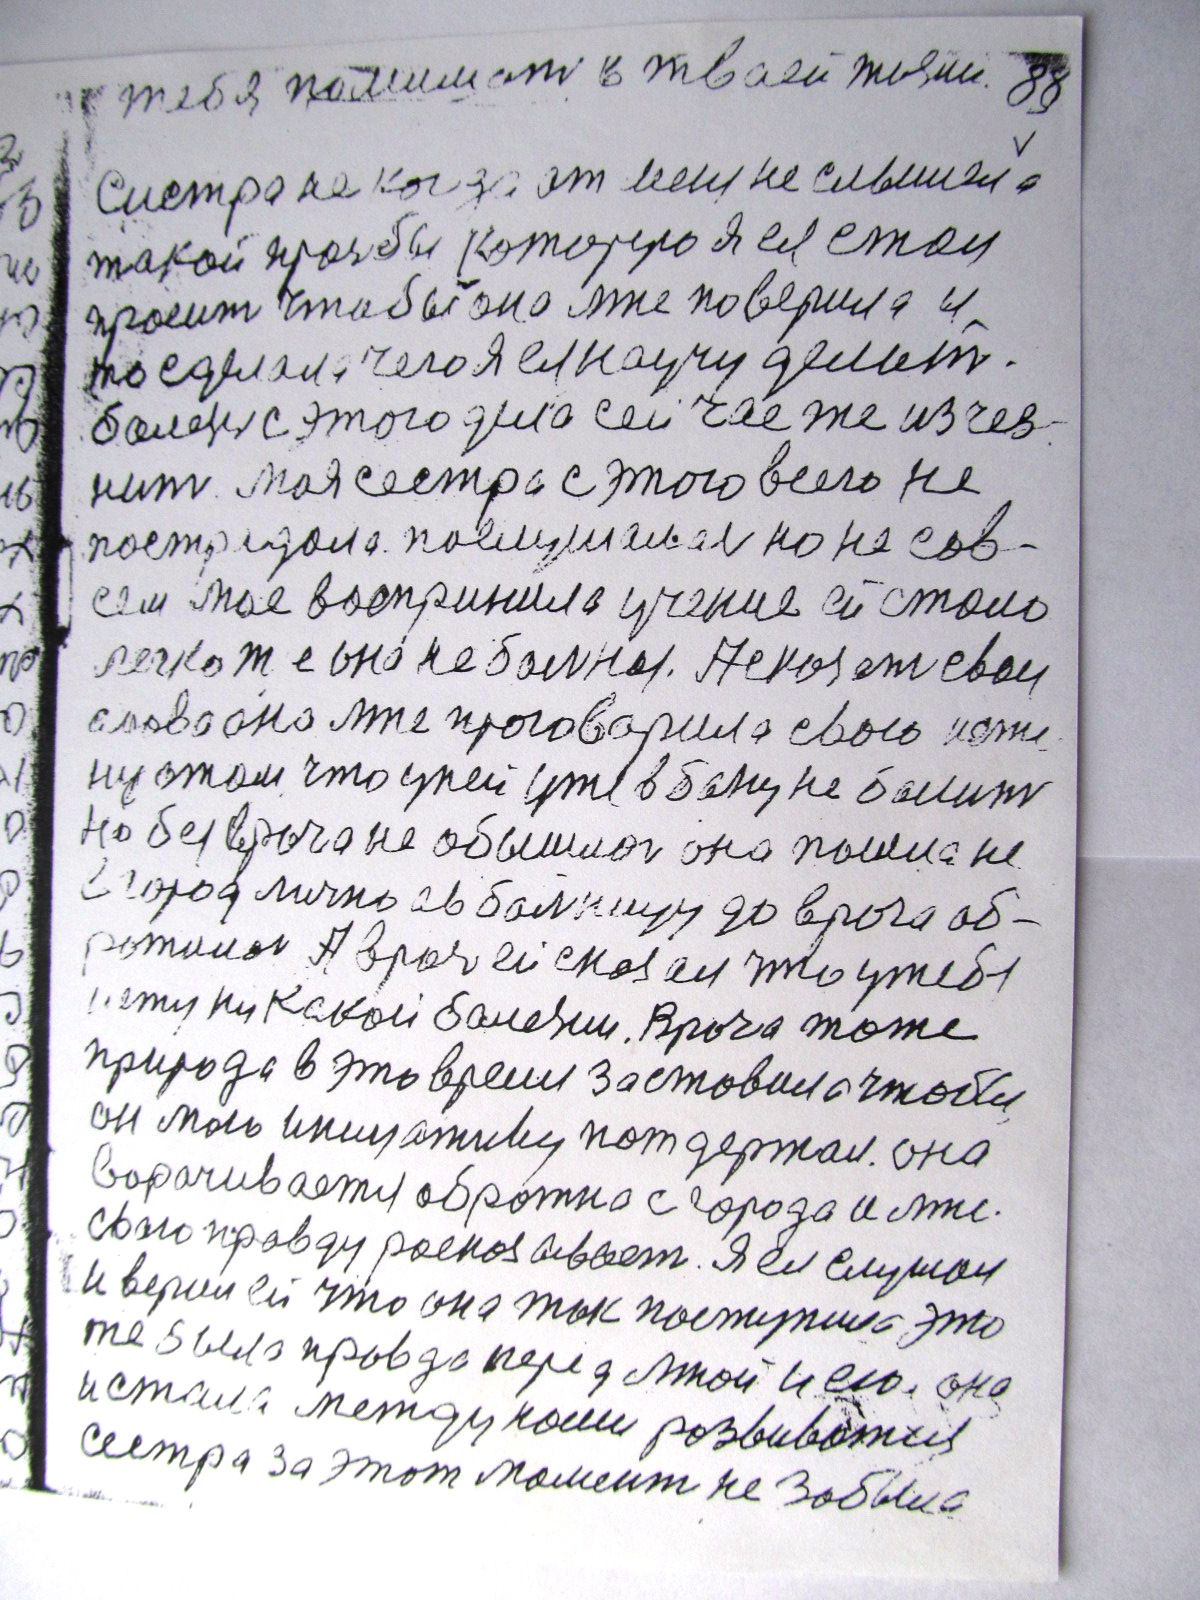 тебя помимат в тваей жизни. 88
Систра не когда от меня не слышала
такой прозьбы которую я ея стал
просит чтобы она мне поверила и
то сделала чего я ея научу делат.
болезнь с этого дила сейчас же изчез-
нит. моя сестра с этого всего не
пострадола. послушалась но не сов-
сем мое воспринила учение ей стало
легко т е она не болная. А сказат свои
слова она мне проговарила свою исти
ну этом что у ней уже в баку не болит
но без врача не обышлоя она пошла не
с город лично в болницу до врача об-
ратилоя А врач ей сказал что у тебя
нету ни какой болезни. Врача тоже
природа в это время заставила чтобы
он мою иницативу потдержал. она
ворачивается обратна с города и мне
свою правду расказывает. Я ея слушал
и верил ей что она так поступила это
же была правда перед мной и ею. она
и стала между нами розвиватся
сестра за этот момент не забыла